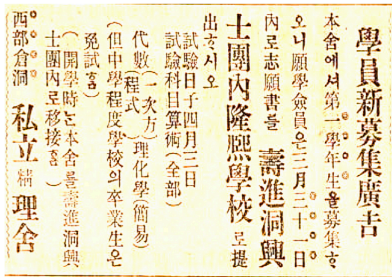 學員新募集廣告
本舍에셔第一學年生을募集ᄒ
오니願學僉員은三月三十一日
內로志願書를 壽進洞興
士團內隆熙學校로提
出ᄒ시오
試驗日子四月三日
試驗科目算術(全部)
代數(一次方程式)理化學(簡易)
(但中學程度學校의卒業生은
免試ᄒᆷ)
(開學時ᄂᆫ本舍를壽進洞興
士團內로移接ᄒᆷ)
西部倉洞 私立精理舍